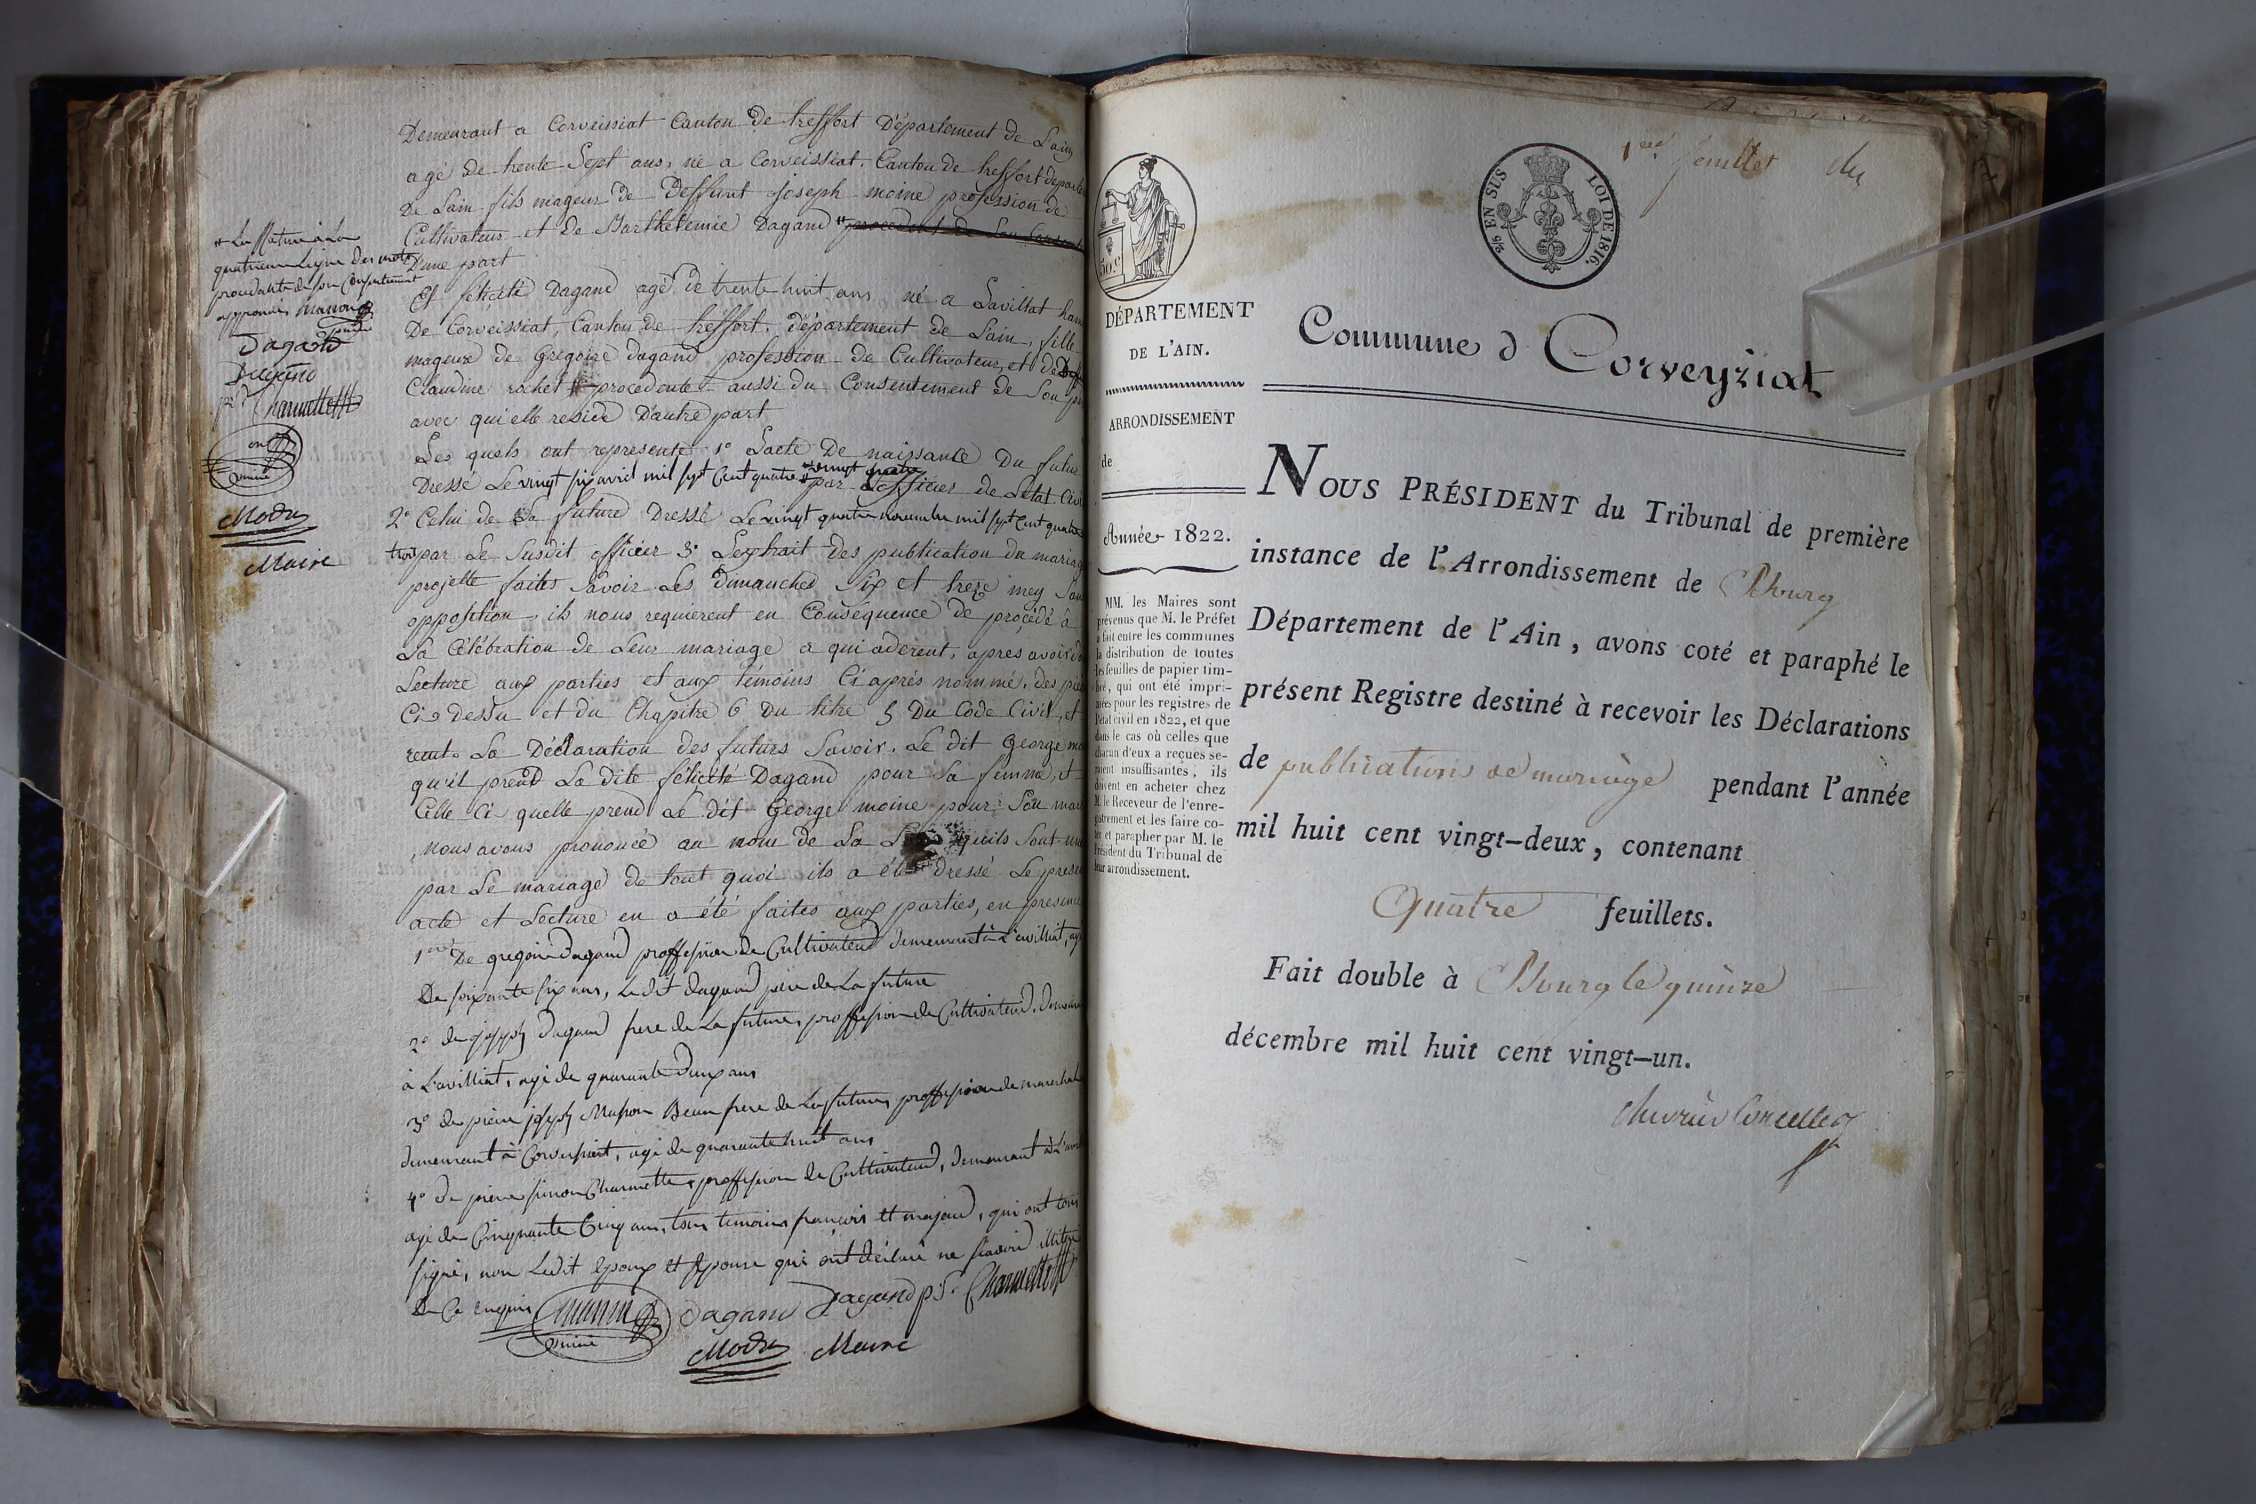 Demeurant a Corveissiat Canton de treffort Département de Lain
agé de trente Sept ans, né a Corveissiat, Canton de treffort départe
De Lain fils mageur de Deffunt joseph moine profession de
Cultivateur et de Barthelemie Dagand procedant de Son Consent
D'une part
Et félicité Dagand agé de trente huit ans né a Lavillat ham
De Corveissiat, Canton de treffort, département de Lain, fille
mageure de Grégoire dagand profession de Cultivateur, et de
Claudine rochet procedente aussi du Consentement de Son pè
avec qui elle reside D'autre part
Les quels ont representé 1° Lacte De naissance Du futur
Dressé Le vingt six avril mil sept Cent quatre vingt quatre par Lofficier de Letat Civi
2° Celui de La future Dressé Le vingt quatre novembre mil sept Cent quatre
trois par Le Susdit officier 3° Lextrait des publication du mariag
projetté faites Savoir Les Dimanches Six et treze mey San
opposition, ils nous requierent en Conséquence de procédé à
La Célébration de Leur mariage a qui aderent, apres avoir
Lecture aux parties et aux témoins Ci après nommé, des pie
Ci Dessu et du Chapitre 6 Du titre 5 Du Code Civil, et
reçut La Déclaration des futurs Savoir. Le dit George mo
qu'il prend La dite félicité Dagand pour Sa femme, et
Celle Ci quelle prend Le dit George moine pour Son mar
, nous avons prononcé au nom de La quils Sont uni
par Le mariage de tout quoi ils a été dressé Le presen
acte et Lecture en a été faites aux parties, en presence
De gregoire dagand proffession de Cultivateur demeurant à Lavilliat, agé
De soixante six ans, Ledit dagand pere de La future
2° de joseph dagand frere de La future, proffession de Cultivateur, demeura
à Lavilliat, agé de quarante deux ans
3° de pierre joseph Masson Beau frere de La future, proffession de marechal
demeurant à Corveissiat, agé de quarante huit ans
4° de pierre simon Charmette, proffession de Cultivateur, demeurant à Lavi
agé de Cinquante Cinq ans, tous temoins françois et majeur, qui ont tous
signé, non Ledit Epoux et Epouse qui ont déclaré ne scavoir
De Ce enquis
Dagand Dagand p.S. Charmette
Modas Maire
La Rature à La
quatrieme Ligne Des mots
procedant de son Consentement
approuvé, masson
Dagand
Dagand
Charmette
Modas
Maire
1er feuillet du
3/5 EN SUS
LOI DE 1816.
50.c
DÉPARTEMENT
DE L'AIN.
ARRONDISSEMENT
de
Année 1822.
MM. les Maires sont
prévenus que M. le Préfet
a fait entre les communes
la distribution de toutes
les feuilles de papier tim-
bré, qui ont été impri-
mées pour les registres de
l'état civil en 1822, et que
dans le cas où celles que
chacun d'eux a reçues se-
raient insuffisantes, ils
doivent en acheter chez
M. le Receveur de l'enre-
gistrement et les faire co-
ter et parapher par M. le
Président du Tribunal de
leur arrondissement.
Commune d Corveyziat
NOUS PRÉSIDENT du Tribunal de première
instance de l'Arrondissement de Bourg
Département de l'Ain, avons coté et paraphé le
présent Registre destiné à recevoir les Déclarations
de publications de mariage pendant l'année
mil huit cent vingt-deux, contenant
Quatre feuillets.
Fait double à Bourg le quinze
décembre mil huit cent vingt-un.